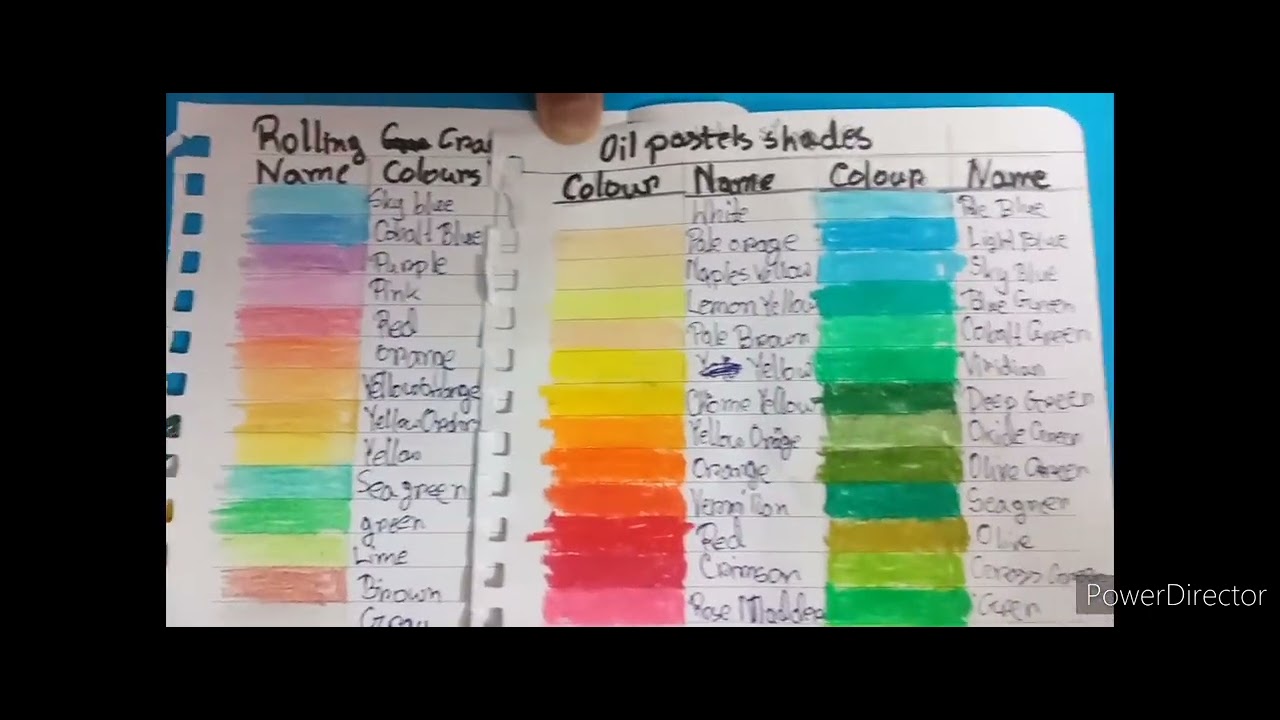 Rolling Cra
Name Colours
Sky blue
Cobalt Blue
Purple
Pink
Red
orange
Yellow orange
Yellow
Seagreen
green
Lime
Brown
Gray
Oil pastels shades
Colour Name Colour Name
White Pale Blue
Pale orange Light Blue
Naples Yellow Sky Blue
Lemon Yellow Blue Green
Pale Brown Cobalt Green
Yellow Viridian
Crome Yellow Deep Green
Yellow Orange Oxide Green
Orange Olive Green
Vermilion Seagreen
Red Olive
Crimson
Rose Madder Green
PowerDirector